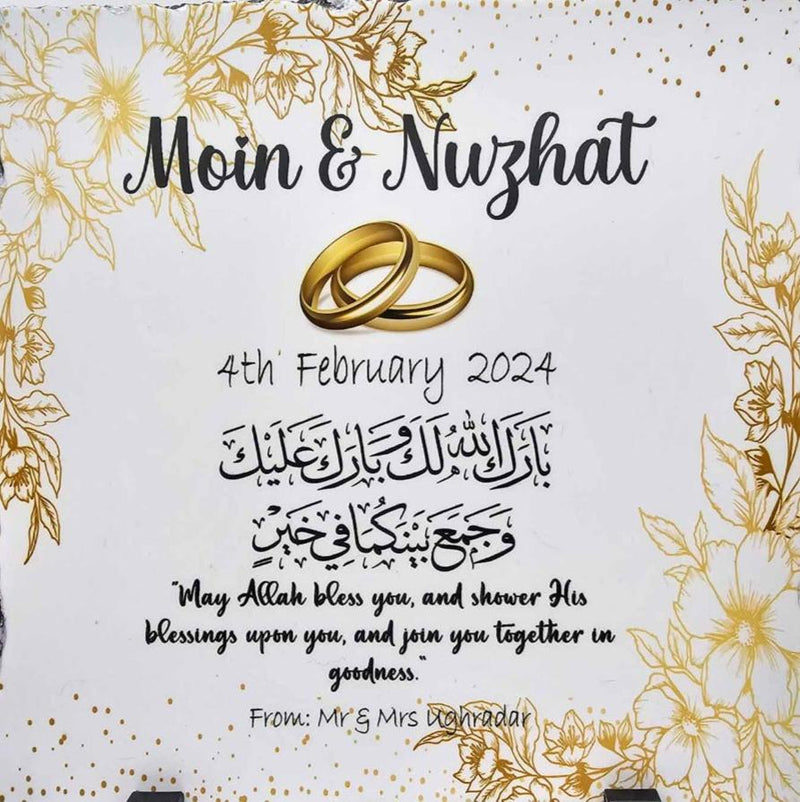 Moin & Nuzhat
4th February 2024
بَارَكَ اللهُ لَكَ وَبَارَكَ عَلَيْكَ
وَجَمَعَ بَيْنَكُمَا فِي خَيْرٍ
"May Allah bless you, and shower His
blessings upon you, and join you together in
goodness."
From: Mr & Mrs Ughradar